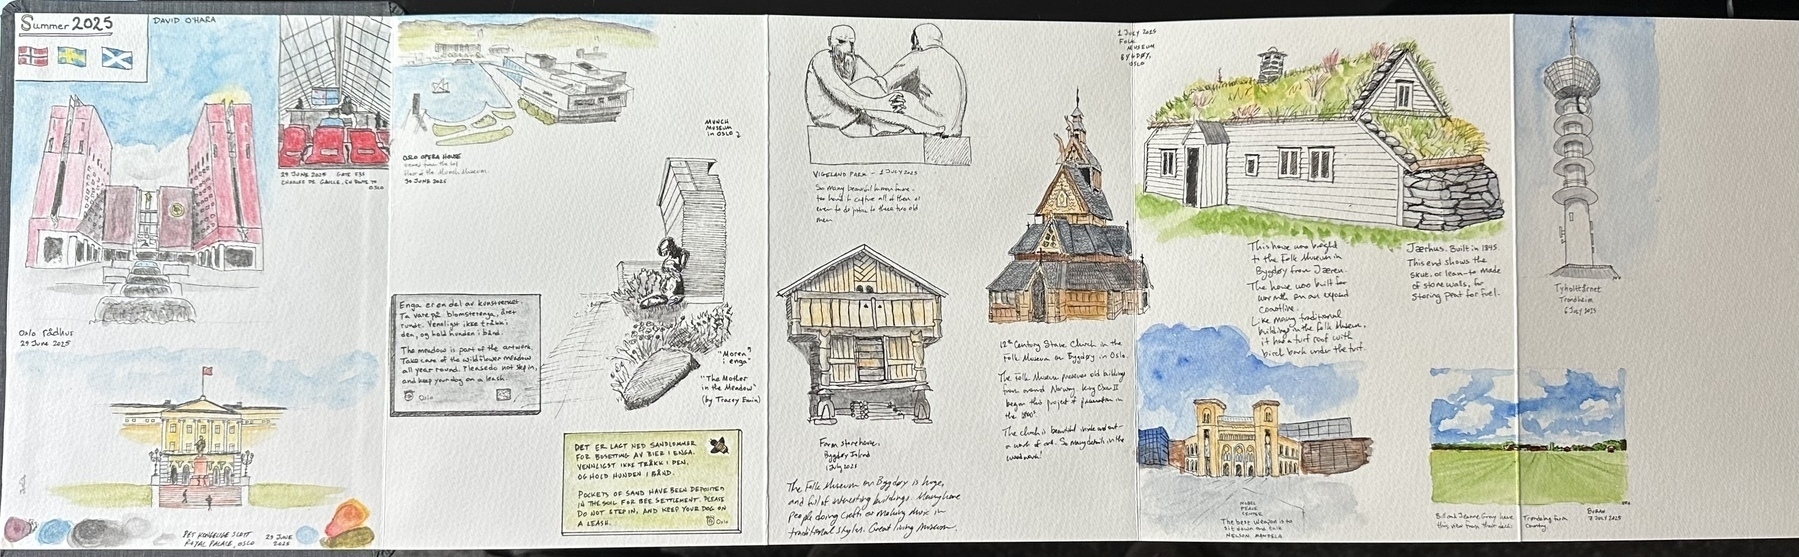 Summer 2025
DAVID O'HARA
29 JUNE 2025 GATE
CHARLES DE GAULLE, EN ROUTE TO
OSLO
Oslo rådhus
29 June 2025
DET KONGELIGE SLOTT
ROYAL PALACE, OSLO
29 JUNE
2025
OSLO OPERA HOUSE
seen from the
floor of the Munch Museum
30 JUNE 2025
MUNCH
MUSEUM
in OSLO
Enga er en del av kunstverket.
Ta vare på blomsterenga, året
rundt. Vennligst ikke tråkk i
den, og hold hunden i bånd.
The meadow is part of the artwork.
Take care of the wildflower meadow
all year round. Please do not step in,
and keep your dog on a leash.
Oslo
"Moren
i enga"
"The Mother
in the Meadow"
(by Tracey Emin)
DET ER LAGT NED SANDLOMMER
FOR BOSETTING AV BIER I ENGA.
VENNLIGST IKKE TRÅKK I DEN,
OG HOLD HUNDEN I BÅND.
POCKETS OF SAND HAVE BEEN DEPOSITED
IN THE SOIL FOR BEE SETTLEMENT. PLEASE
DO NOT STEP IN, AND KEEP YOUR DOG ON
A LEASH.
Oslo
VIGELAND PARK - 1 JULY 2025
So many beautiful human forms -
too hard to capture all of them, or
even to do justice to these two old
men.
Farm storehouse,
Bygdøy Island
1 July 2025
The Folk Museum on Bygdøy is huge,
and full of interesting buildings. Many have
people doing crafts or making music in
traditional styles. Great living museum.
12th Century Stave Church in the
Folk Museum on Bygdøy in Oslo.
The Folk Museum preserves old buildings
from around Norway. King Oscar II
began this project of preservation in
the 1800s
The church is beautiful inside and out -
a work of art. So many details in the
woodwork!
1 JULY 2025
FOLK
MUSEUM
BYGDØY,
OSLO
This house was brought
to the Folk Museum in
Bygdøy from Jæren.
The house was built for
warmth on an exposed
coastline.
Like many traditional
buildings in the Folk Museum,
it had a turf roof with
birch bark under the turf.
Jærhus. Built in 1845.
This end shows the
skut, or lean-to made
of stone walls, for
storing peat for fuel.
NOBEL
PEACE
CENTER
The best weapon is to
sit down and talk
NELSON MANDELA
Tyholttårnet
Trondheim
6 July 2025
Bill and Jeanne Gray have
this view from their deck
Trøndelag farm
country
7 JULY 2025